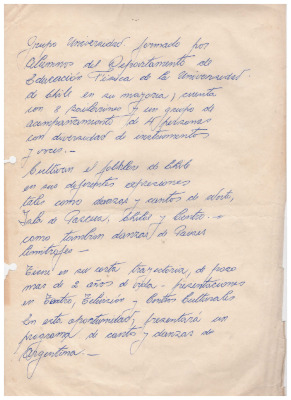 Grupo Universidad formado por
Alumnos del Departamento de
Educación Física de la Universidad
de Chile en su mayoría, cuenta
con 8 bailarines y un grupo de
acompañamiento de 4 personas
con diversidad de instrumentos
y voces. -
Cultivan el folklore de Chile
en sus diferentes expresiones
tales como danzas y cantos de Norte,
Isla de Pascua, Chiloé y Centro. -
como también danzas de Países
limítrofes -
Tiene en su corta trayectoria, de poco
mas de 2 años de vida - presentaciones
en Teatro, Televisión y Centros Culturales
En esta oportunidad, presentará un
programa de cantos y danzas de
Argentina. -